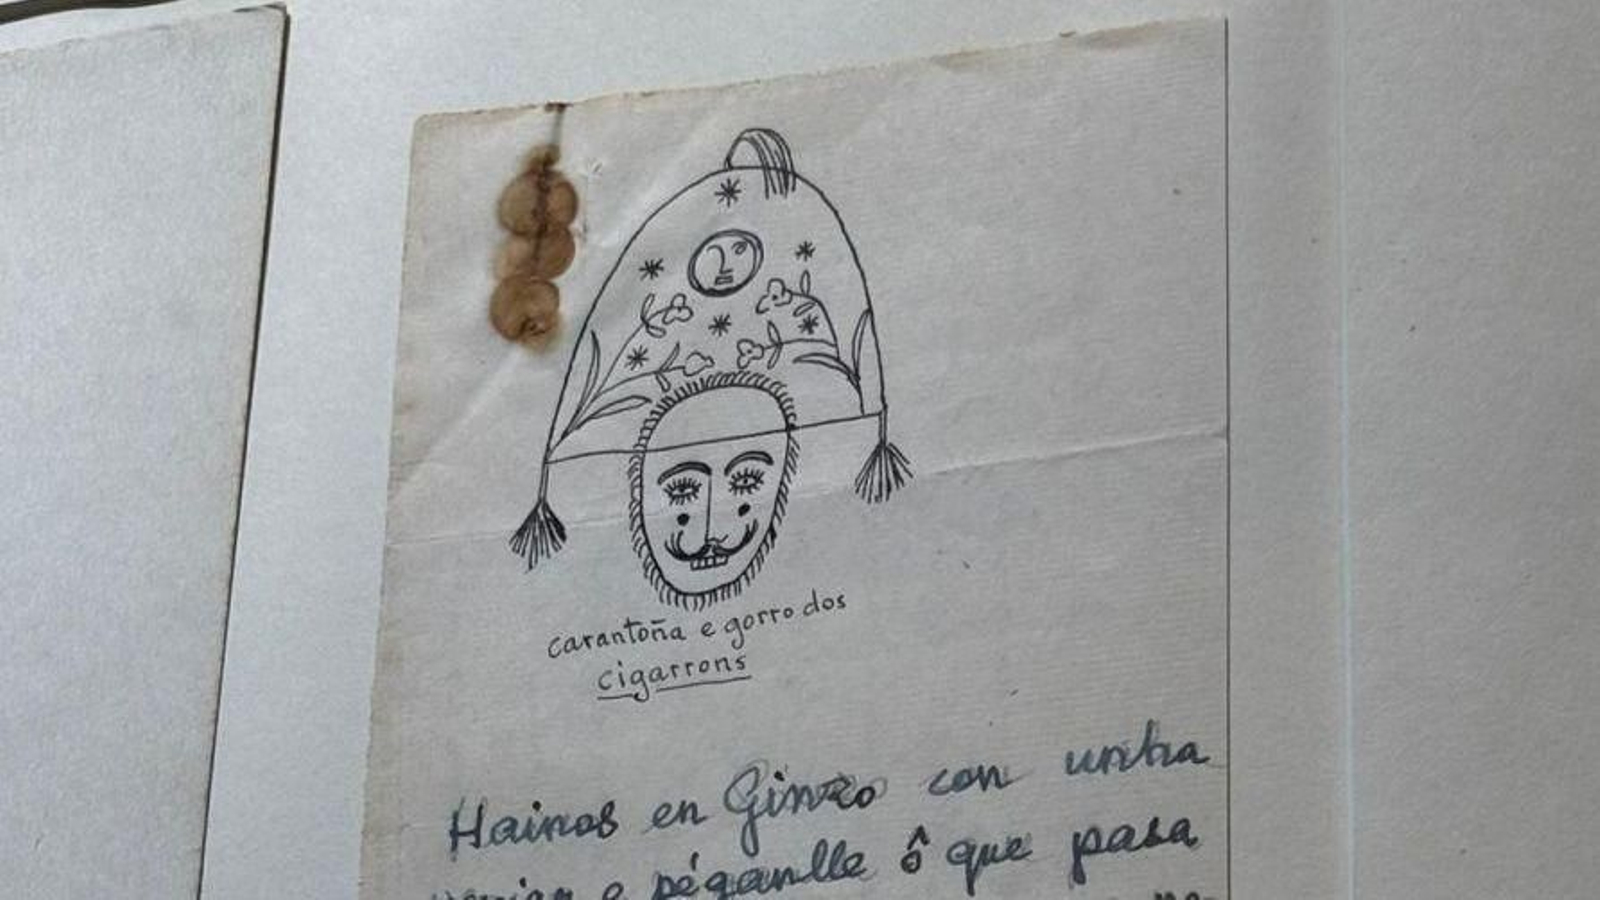 carantoña e gorro dos
cigarrons
Hainos en Ginzo con untha
e péganlle ô que pasa